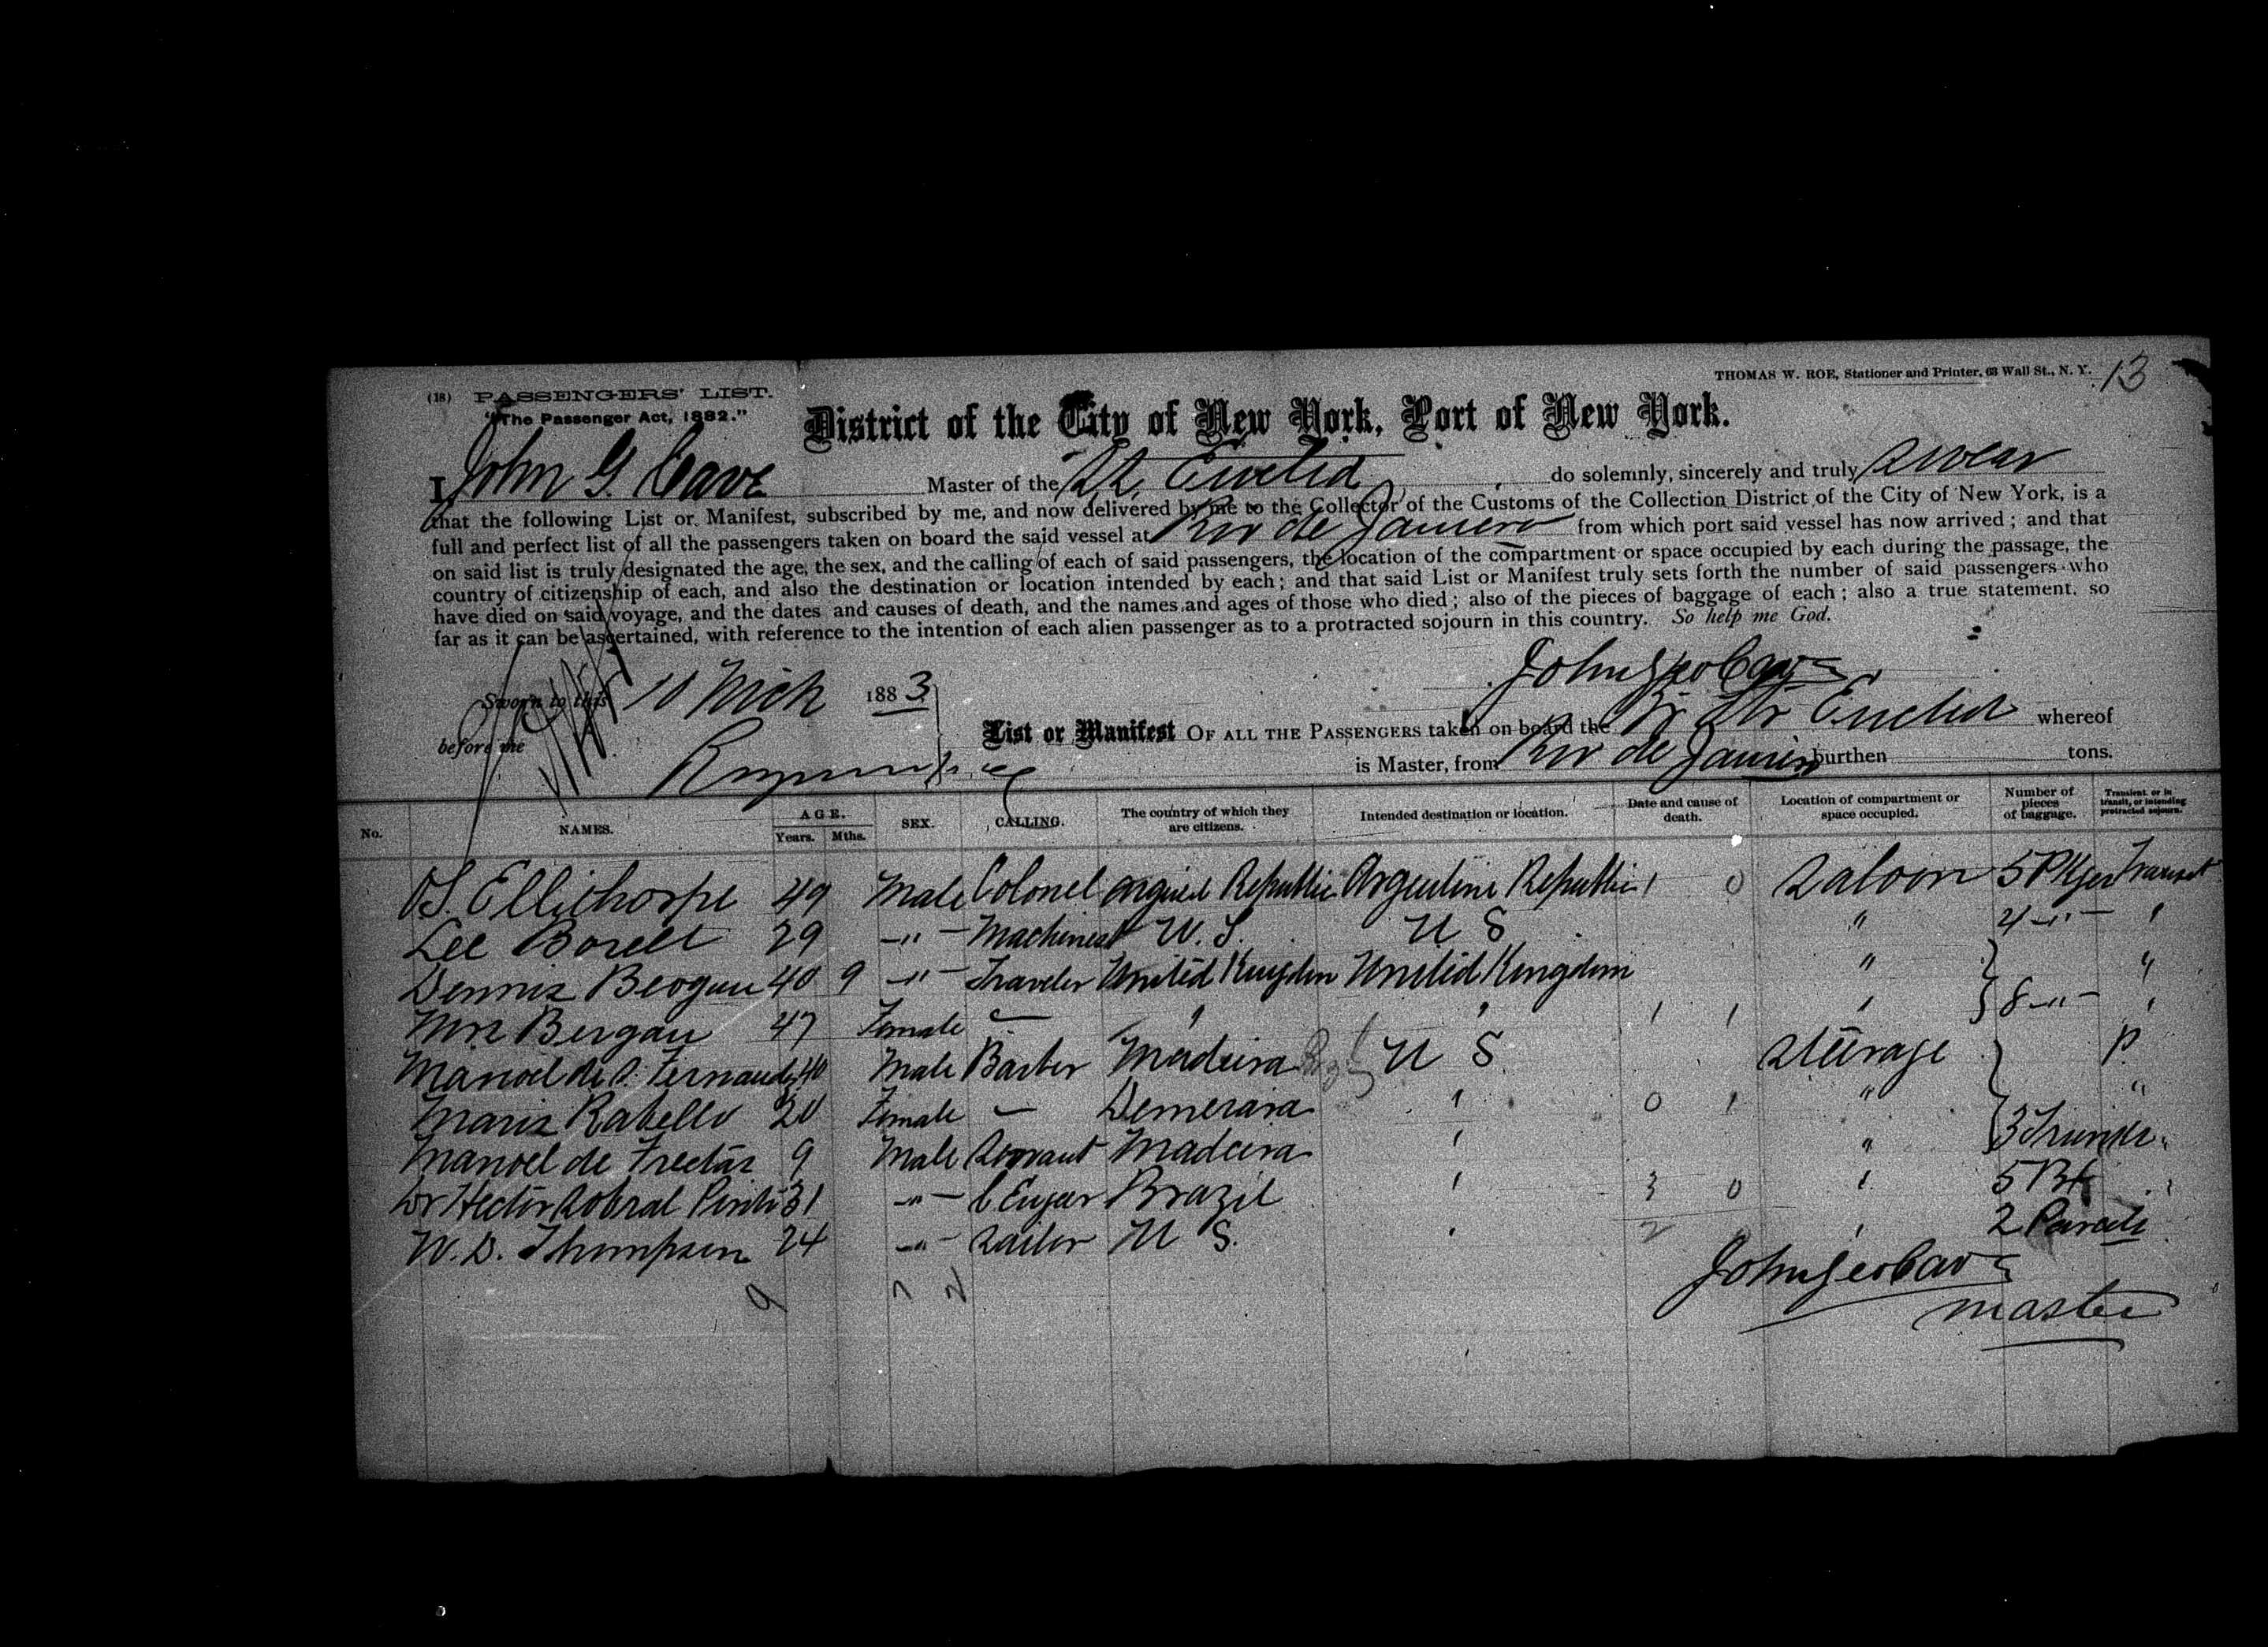 THOMAS W. ROE, Stationer and Printer, 63 Wall St., N. Y. 13
(18) PASSENGERS' LIST.
"The Passenger Act, 1882."
District of the City of New York, Port of New York.
I, John G. Cave Master of the SS. Euclid do solemnly, sincerely and truly swear
that the following List or Manifest, subscribed by me, and now delivered by me to the Collector of the Customs of the Collection District of the City of New York, is a
full and perfect list of all the passengers taken on board the said vessel at Rio de Janeiro from which port said vessel has now arrived; and that
on said list is truly designated the age, the sex, and the calling of each of said passengers, the location of the compartment or space occupied by each during the passage, the
country of citizenship of each, and also the destination or location intended by each; and that said List or Manifest truly sets forth the number of said passengers who
have died on said voyage, and the dates and causes of death, and the names and ages of those who died; also of the pieces of baggage of each; also a true statement, so
far as it can be ascertained, with reference to the intention of each alien passenger as to a protracted sojourn in this country. So help me God.
John Geo Cave
Sworn to this 10 Mch 1883
before me
List or Manifest OF ALL THE PASSENGERS taken on board the Br Str Euclid whereof
is Master, from Rio de Janeiro burthen tons.
No. NAMES. AGE. Years. Mths. SEX. CALLING. The country of which they are citizens. Intended destination or location. Date and cause of death. Location of compartment or space occupied. Number of pieces of baggage. Transient, or in transit, or intending protracted sojourn.
S. Ellithorpe 49 Male Colonel Republic Argentine Republic 1 0 Saloon 5 Pkges Transit
Lee Borell 29 -"- Machinest U.S. U S " 4 -"- "
Dennis Beogan 40 9 -"- Traveler United Kingdom United Kingdom " "
Mrs Bergan 47 Female — " " 1 1 " 8 -"- "
Manoel de S. Fernandes 40 Male Barber Madeira U S Steerage P
Maria Rabello 20 Female — Demerara " 0 1 " "
Manoel de Freitas 9 Male Servant Madeira " " 3 Trunks "
Dr Hector Sobral Pinto 31 -"- C Enger Brazil " 3 0 " 5 "
W. D. Thompson 24 -"- Sailor U S. " 2 " 2 Parcels
9 7 2
John Geo Cave
Master